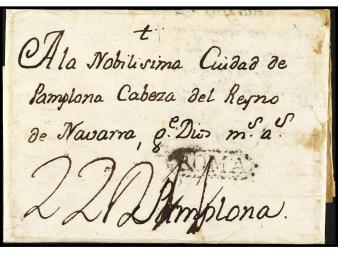 +
A la Nobilisima Ciudad de
Pamplona Cabeza del Reyno
de Navarra, g.e Dios m.s a.s
ROMA
Pamplona.